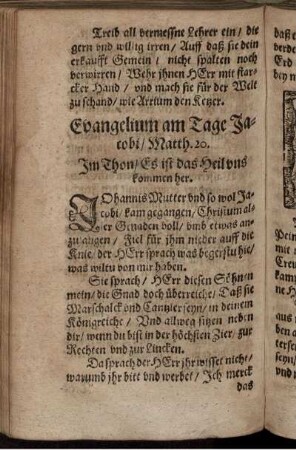 Treib all vermessne Lehrer ein/ die
gern vnd willig irren/ Auff daß sie dein
erkaufft Gemein/ nicht spalten noch
verwirren/ Wehr jhnen HErr mit star-
cker Hand/ vnd mach sie für der Welt
zu schand/ wie Arrium den Ketzer.
Evangelium am Tage Ja-
cobi/ Matth. 20.
Im Thon/ Es ist das Heil vns
kommen her.
JOhannis Mutter vnd so wol Ja-
cobi/ kam gegangen/ Christum al-
ler Genaden voll/ vmb etwas an-
zulangen/ Fiel für jhm nieder auff die
Knie/ der HErr sprach was begerstu hie/
was wiltu von mir haben.
Sie sprach/ HErr diesen Söhnen
mein/ die Gnad doch überreiche/ Daß sie
Marschalck vnd Cantzler seyn/ in deinem
Königreiche/ Vnd allweg sitzen neben
dir/ wenn du bist in der höchsten Zier/ zur
Rechten vnd zur Lincken.
Da sprach der HErr jhr wisset nicht/
warumb jhr bitt vnd werbet/ Ich merck
das